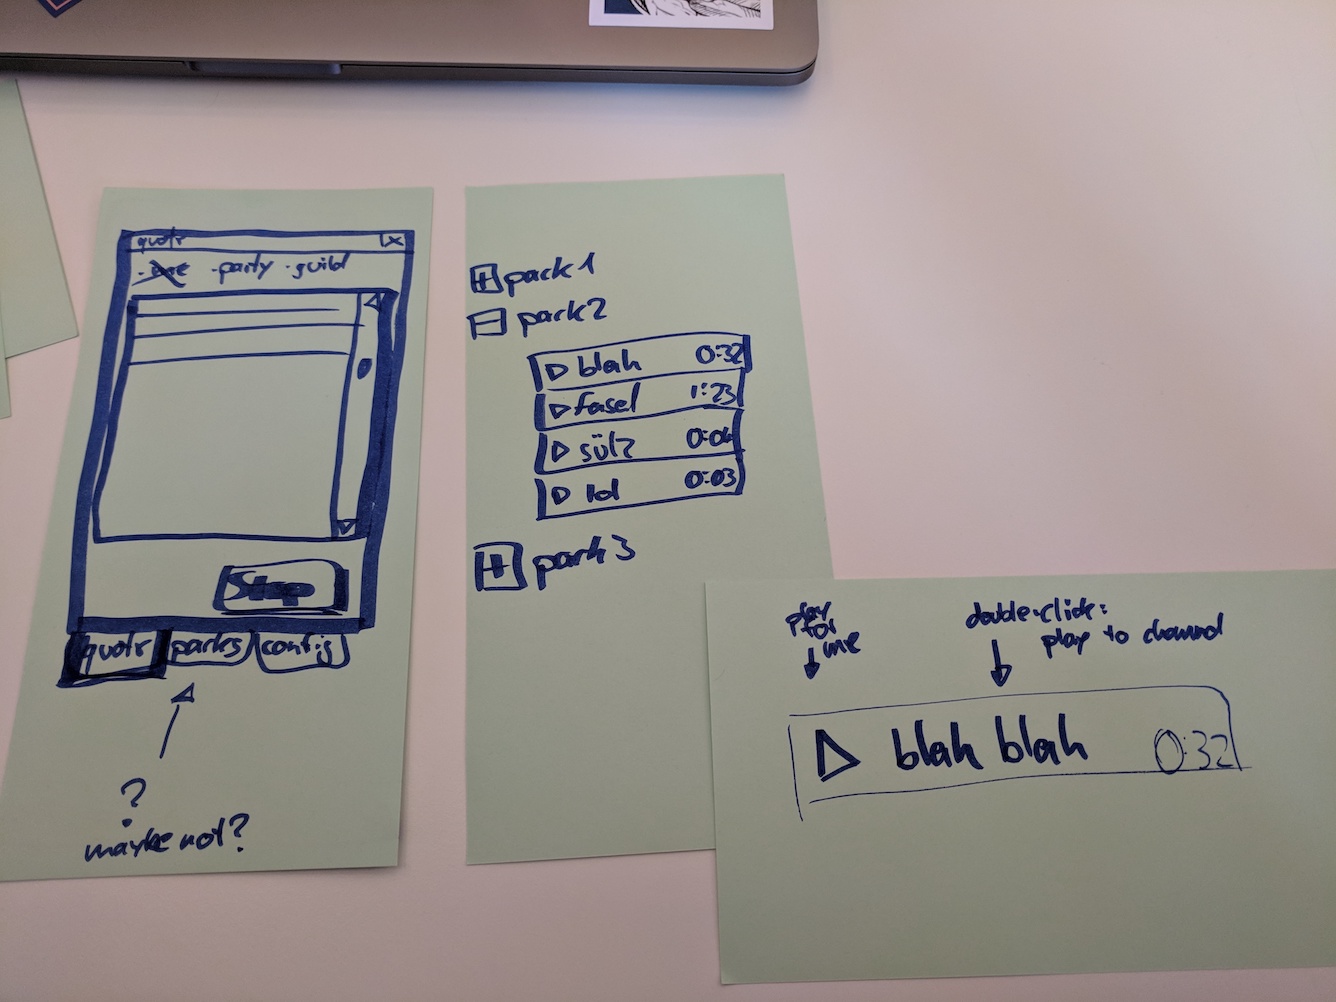 quotr X
· me · party · guild
Stop
quotr packs config
?
maybe not?
+ pack1
- pack2
blah 0:32
fasel 1:23
sülz 0:04
lol 0:03
+ pack3
play
for
me
double-click:
play to channel
blah blah 0:32